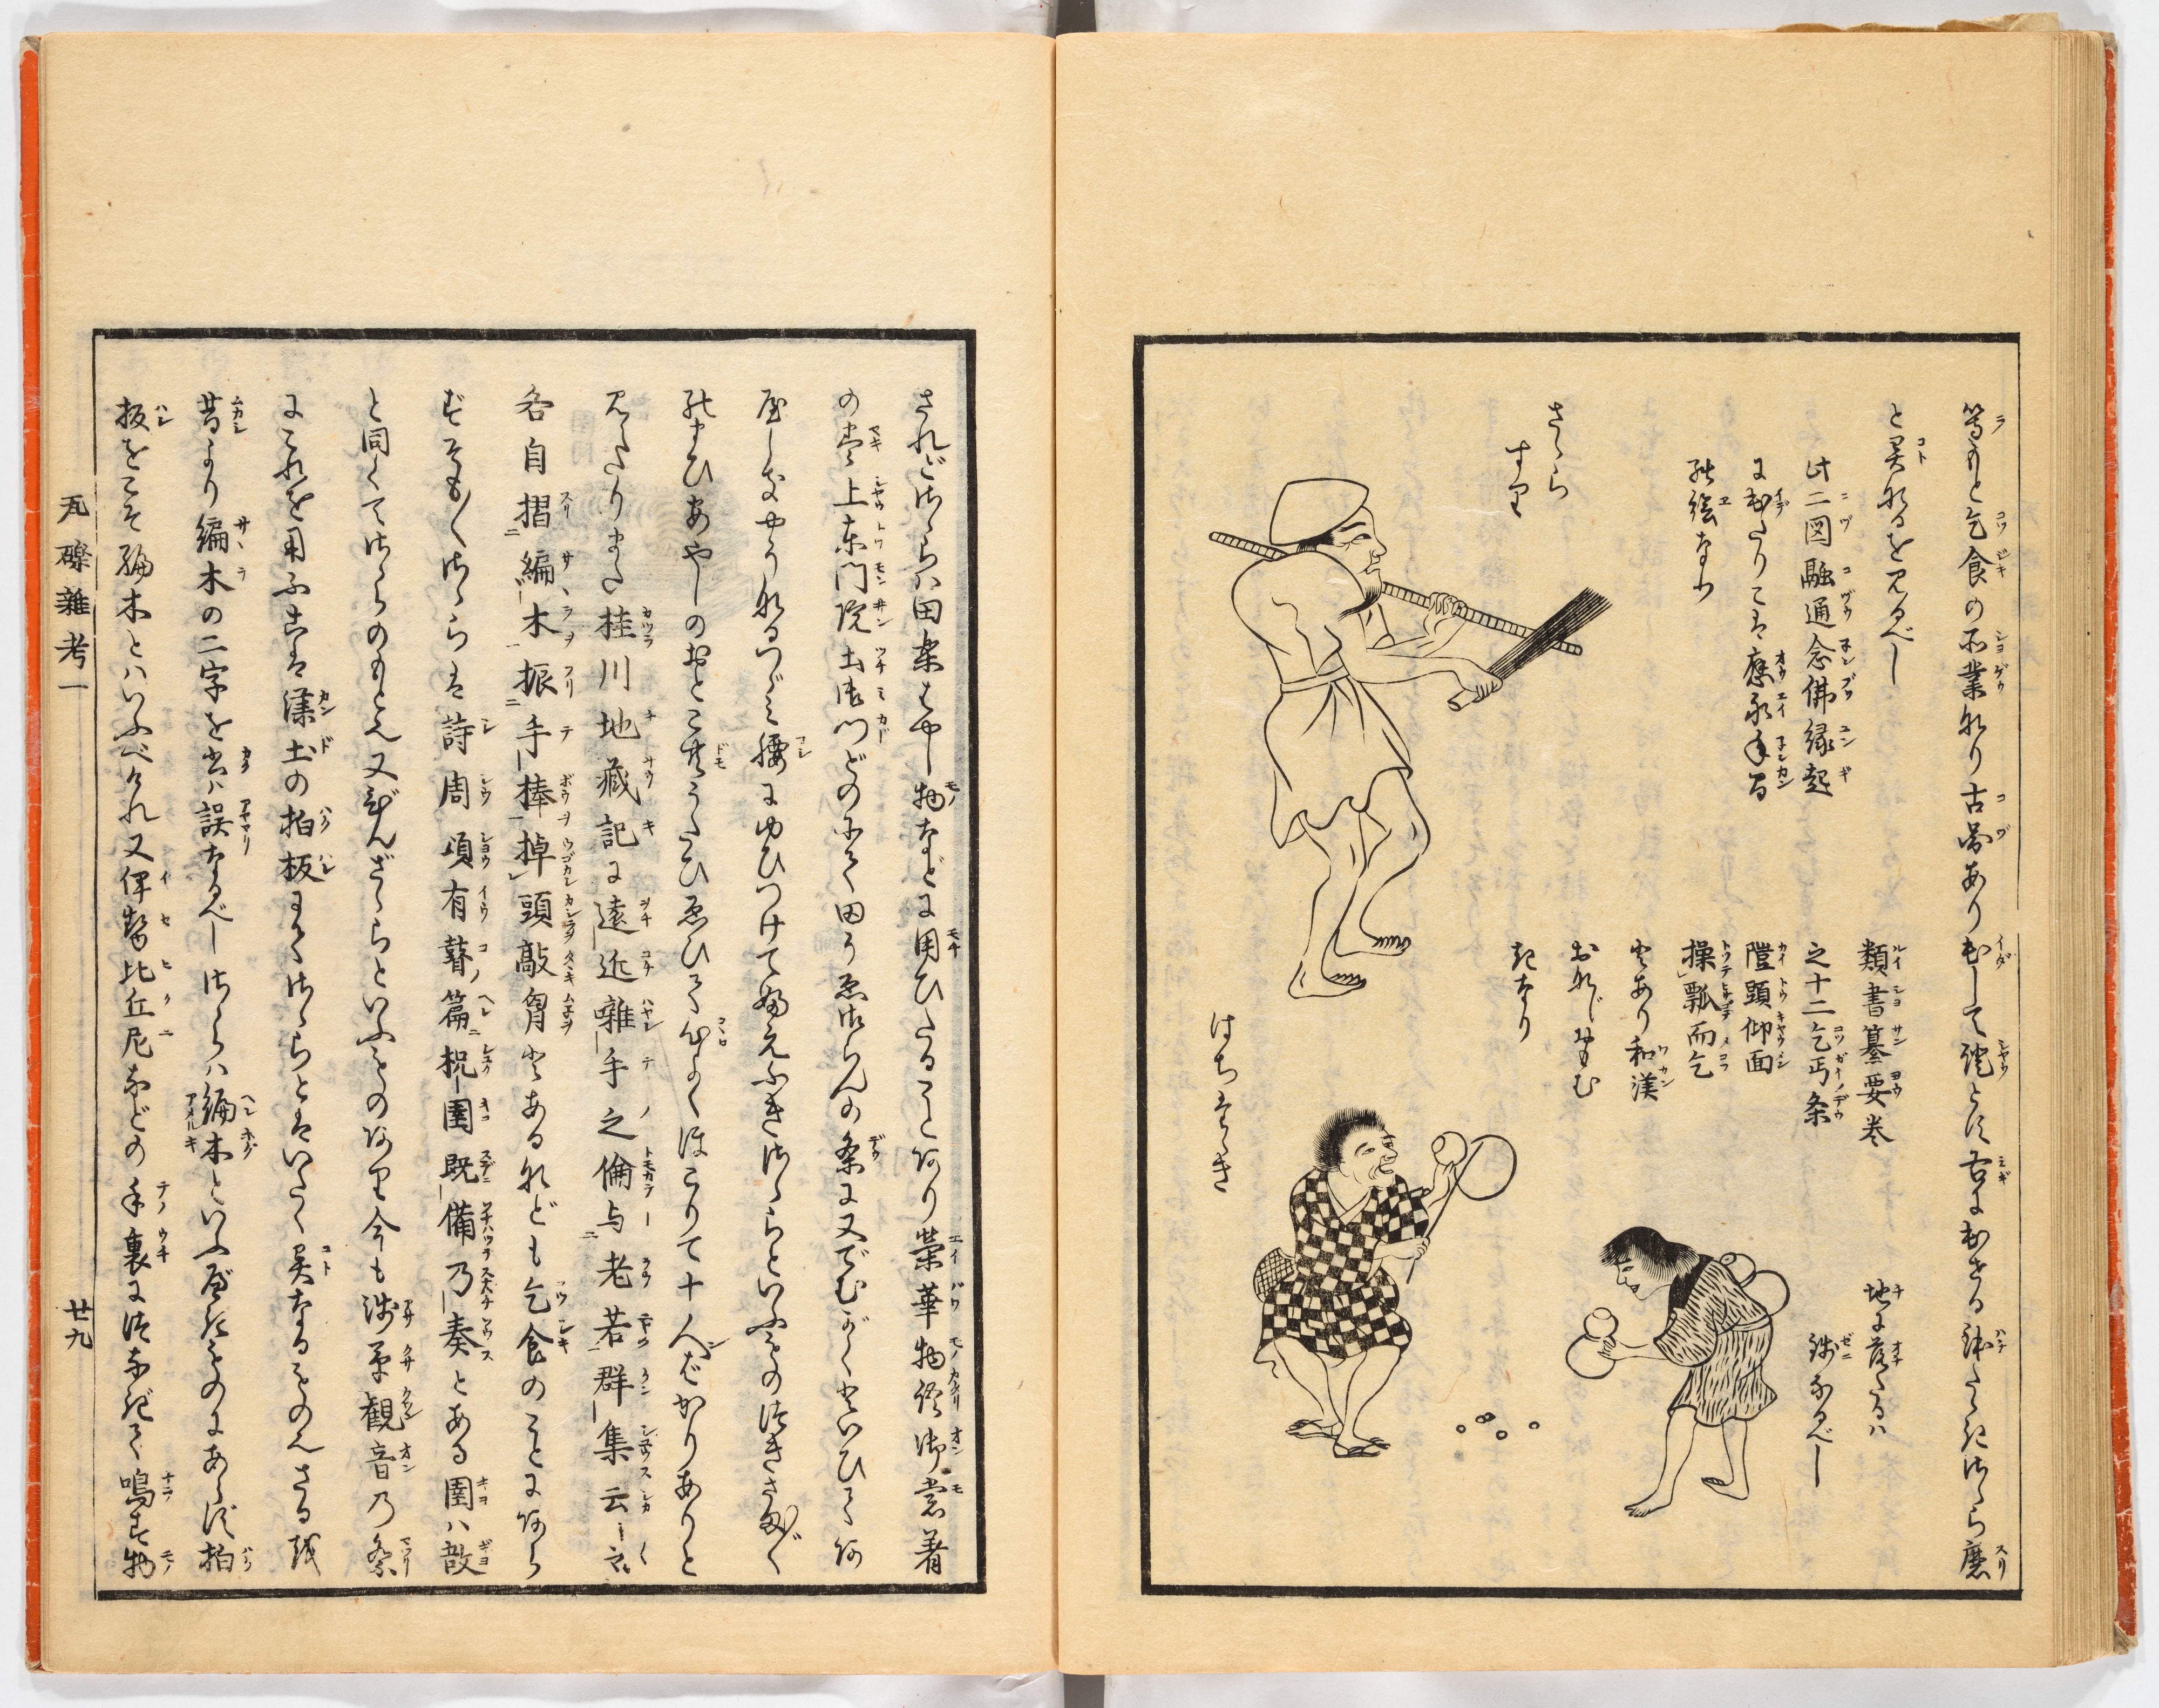 等もと乞食の所業なり古図あり出して證とす右に出せる鉢たゝきさゝら磨
と異なるを見るべし
此二図融通念佛縁起
に出たりこは應永年間
の絵なり
さゝら
すり
類書纂要巻
之十二乞丐条
隑頭仰面
操瓢而乞
とあり和漢
おなじおもむ
きなり
はちたゝき
地に落たるは
錢なるべし
されどさゝらハ田楽はやし物などに用ひたることあり榮華物語御裳着
の巻上東門院土御門どのにて田うゑ御らんの条に又でむがくといひてあ
やしきやうなるつゞミ腰にゆひつけて笛ふきさゝらといふものつきさま〴〵
のまひあやしのおとこ共うたひゑひて心よくほこりて十人ばかりありと
見えたりまた桂川地蔵記に遠近囃手之倫与老若群集云云
各自摺編木振手棒掉頭敲胷とあるなども乞食のことにあら
ずそも〳〵さゝらは詩周頌有瞽篇柷圉既備乃奏とある圉ハ敔
と同くてさゝらのもとん又びんざゝらといふものあり今も浅草観音乃祭
にこれを用ふこは漢土の拍板にてさゝらとはいたく異なるものんさるを
昔より編木の二字を書ハ誤なるべしさゝらハ編木といふべきものにあらず拍
板をこそ編木とハいふべけれ又伊勢比丘尼などの手裏につなぎて鳴す物
瓦礫雑考一
廿九